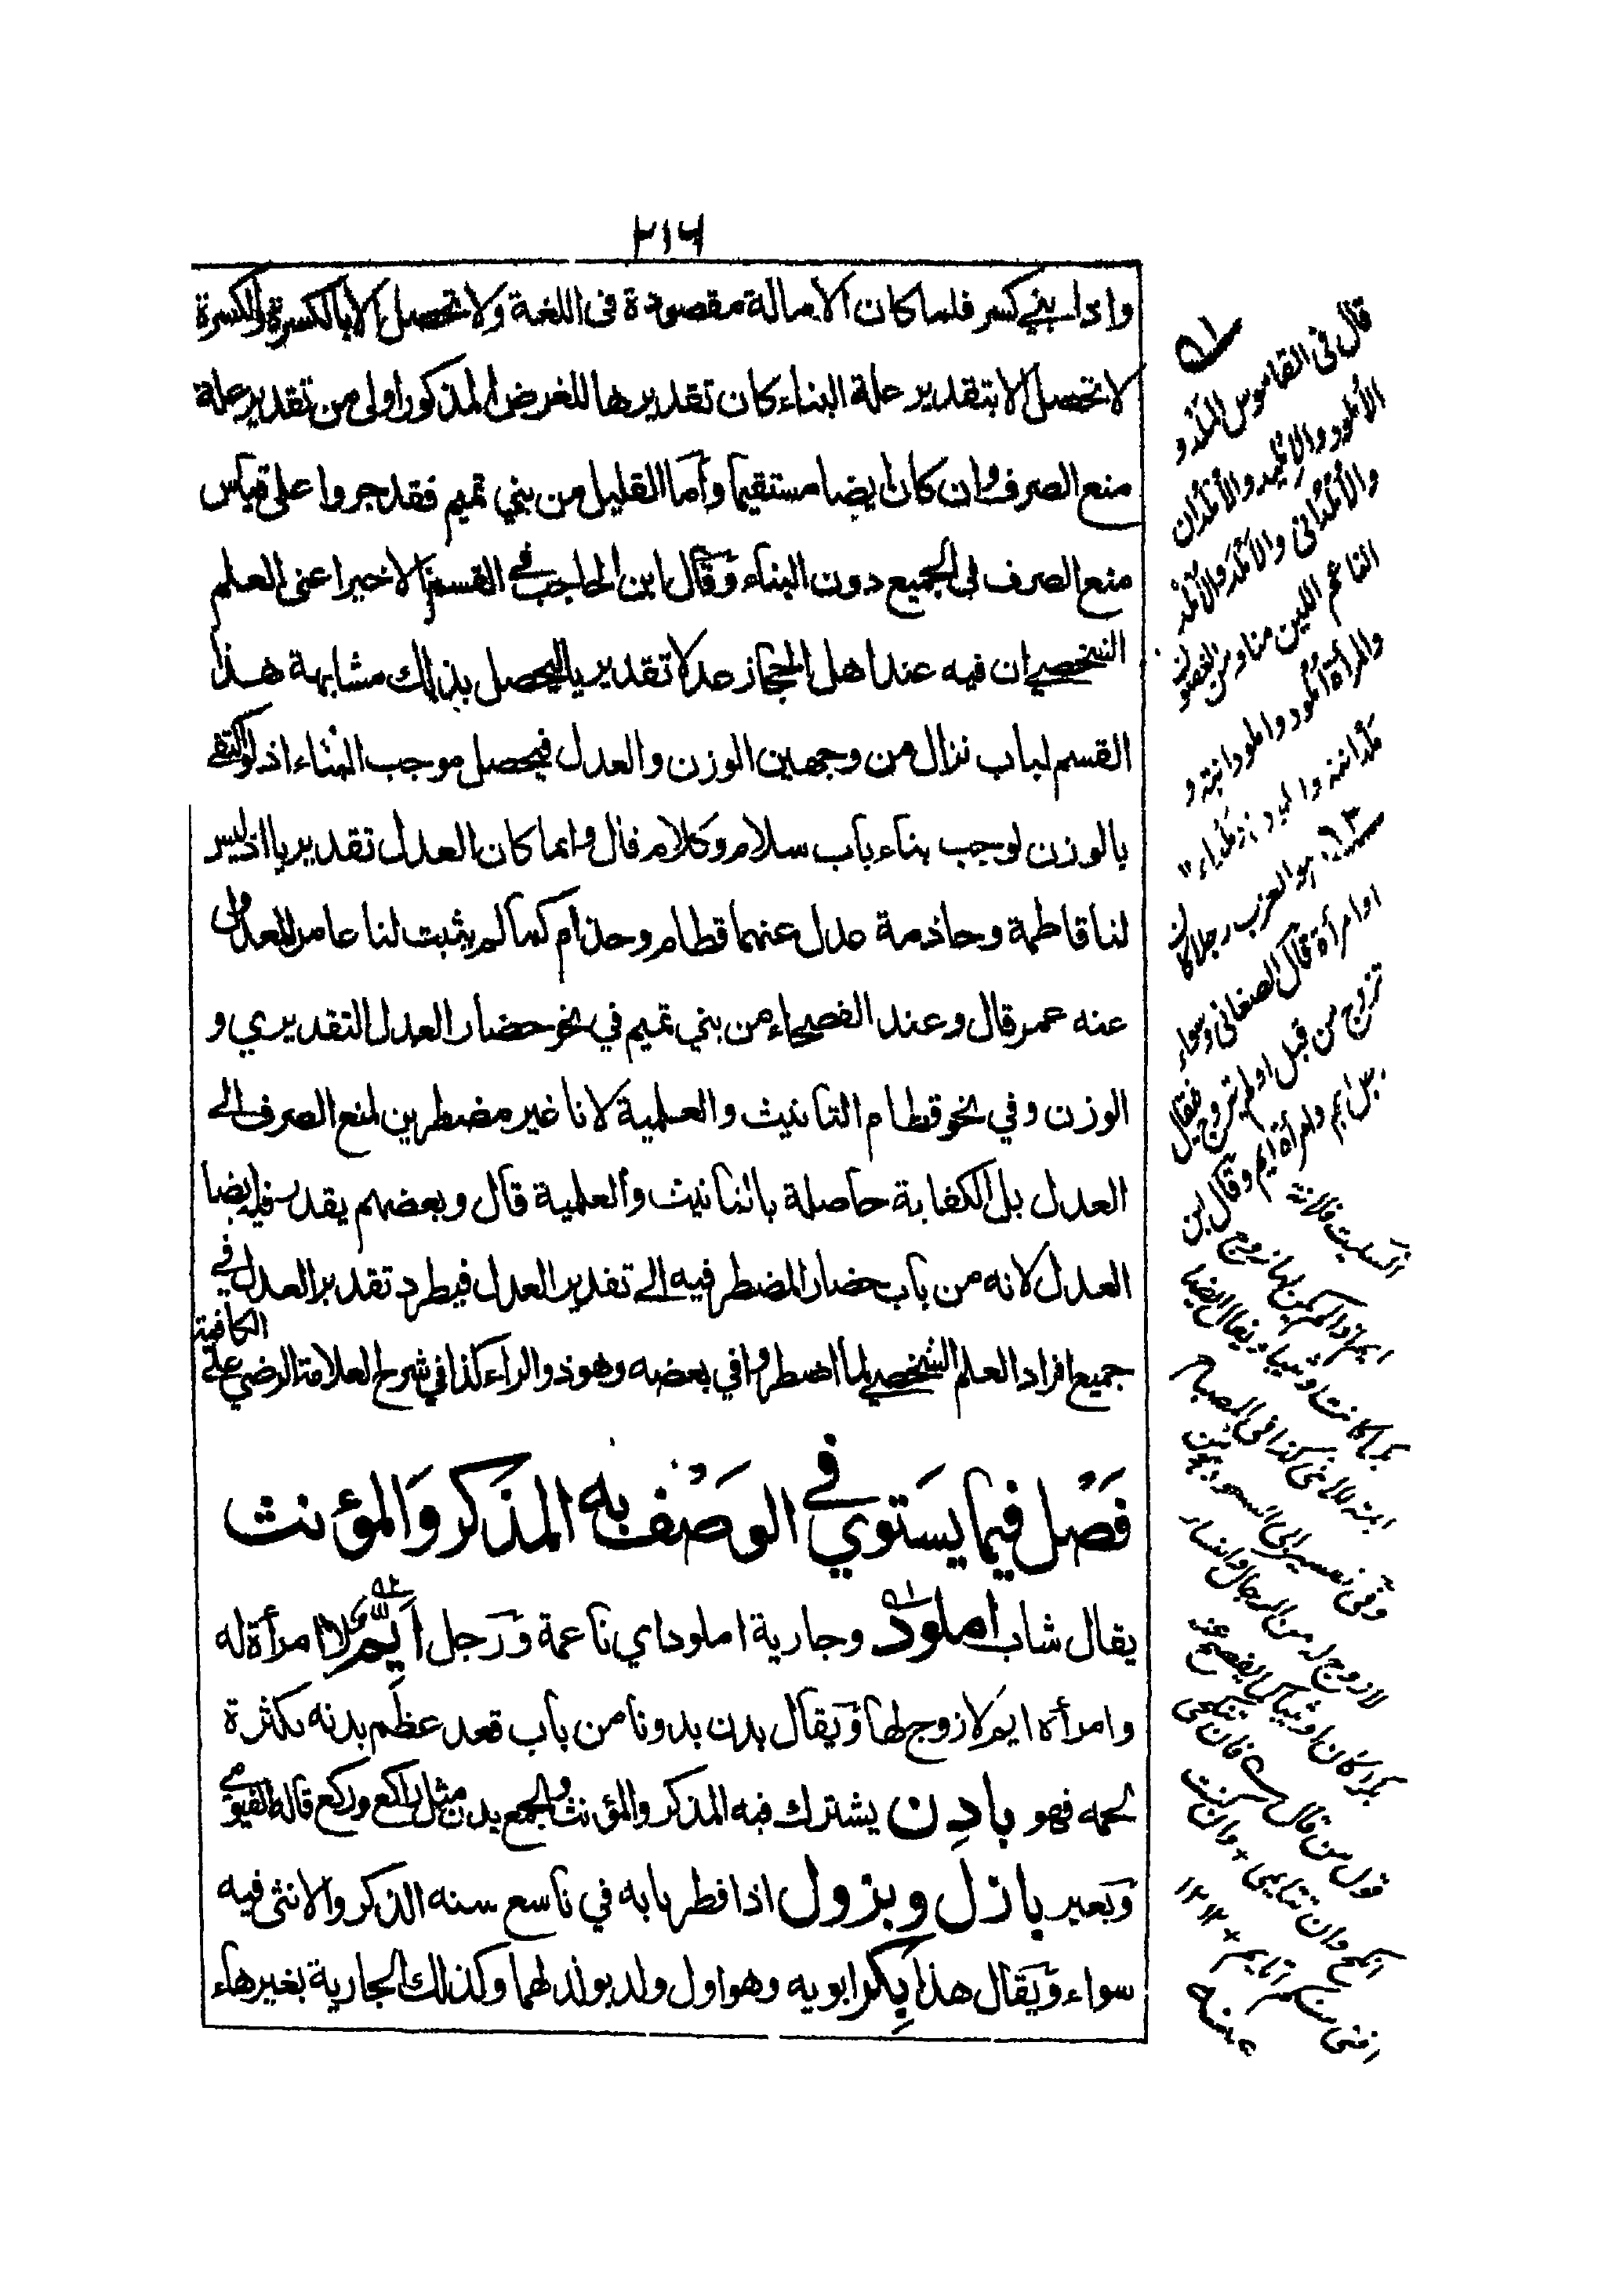 ٢١٦
واذا بني كسر فلما كان الامالة مقصودة في اللغة ولا تحصل الا بالكسرة والكسرة
لا تحصل الا بتقدير علة البناء كان تقديرها للغرض المذكور اولى من تقدير علة
منع الصرف وان كان ايضا مستقيما وأما القليل من بني تميم فقد جروا على قياس
منع الصرف في الجميع دون البناء وقال ابن الحاجب في القسم الاخير اعني العلم
الشخصي ان فيه عند اهل الحجاز عدلا تقديريا ليحصل بذلك مشابهة هذا
القسم لباب نزال من وجهين الوزن والعدل فيحصل موجب البناء اذ لو اكتفى
بالوزن لوجب بناء باب سلام وكلام قال وانما كان العدل تقديريا اذ ليس
لنا قاطمة وحاذمة عدل عنهما قطام وحذام كما لم يثبت لنا عامر المعدول
عنه عمر قال وعند الفصحاء من بني تميم في نحو حضار العدل التقديري و
الوزن وفي نحو قطام التانيث والعلمية لانا غير مضطرين لمنع الصرف الى
العدل بل الكفاية حاصلة بالتانيث والعلمية قال وبعضهم يقدر فيه ايضا
العدل لانه من باب حضار المضطر فيه الى تقدير العدل فيطرد تقدير العدل في
جميع افراد العلم الشخصي لما اضطروا في بعضه وهو ذو الراء كذا في شرح العلامة الرضي على الكافية
فَصْل فيما يَستَوي في الوَصْف به المذَكر وَالمؤنث
يقال شاب املود وجارية املود اي ناعمة وَرَجل اَيِّم لا امرأة له
وامرأة ايم لا زوج لها وَيقال بدن بدونا من باب قعد عظم بدنه بكثرة
لحمه فهو بادِن يشترك فيه المذكر والمؤنث والجمع بدن مثل راكع وركع قاله الفيومي
وَبعير بازل وبزول اذا فطر نابه في تاسع سنه الذكر والانثى فيه
سواء وَيقال هذا بِكر ابويه وهو اول ولد يولد لهما وكذلك الجارية بغير هاء
قال في القاموس المَلْد و
الأملود والإمليد والأملدان
والأملداني والأملد والأملد
الناعم اللين منا ومن الغصون
والمرأة أملود واملودانية و
ملدانية واملود وملداء
هو العزب رجلا كان
او امرأة قال الصغاني وسواء
تزوج من قبل او لم يتزوج فيقال
رجل ايم وامرأة ايم وقال ابن
السكيت فلانة
ايم اذا لم يكن لها زوج
بكرا كانت او ثيبا ويقال ايضا
كذا في المصباح
وفي تفسير ابي السعود
لا زوج له من الرجال والنساء
بكرا كان او ثيبا
قول من قال فان تنكحي
انكح وان تتايمي وان كنت
افتى منكم اتايم